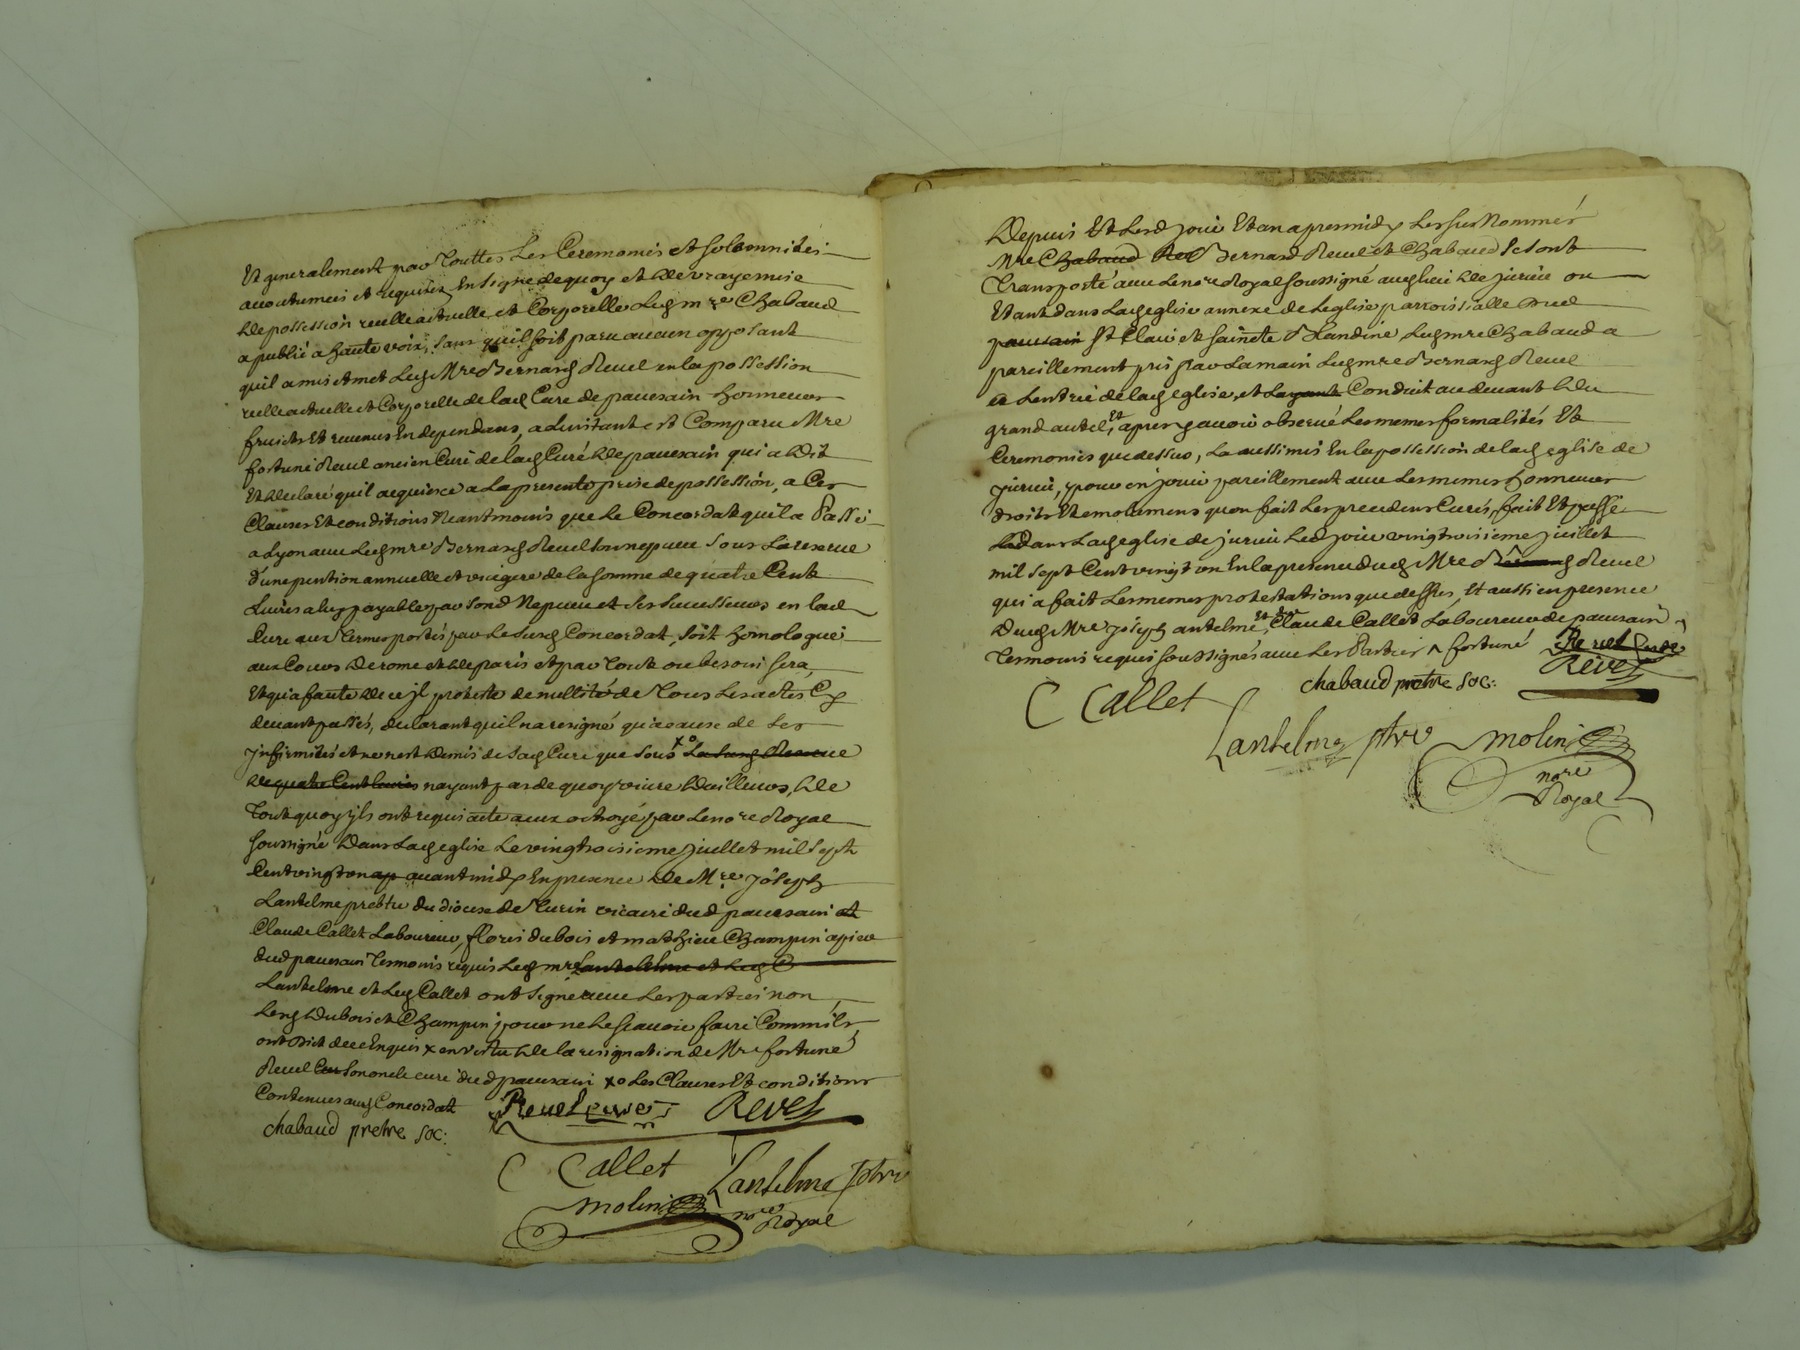 Et generalement par Touttes Les Ceremonies et solemnités
accoutumées et requises En signe de quoy et de vraye mise
de possession reelle actuelle et Corporelle Led mre Chabaud
a publié a haute voix, sans quil soit paru aucun opposant
quil a mis et met Led Mre Bernard Revel en la possession
reelle actuelle et Corporelle de lad Cure de paversain honneurs
fruicts Et revenus En dependans, a Linstant est Comparu Mre
fortuné Revel ancien Curé de lad Cure de paversain qui a dit
Et declaré quil acquiesce a La presente prise de possession, a Ces
Clauses Et conditions Neantmoins que Le Concordat quil a Passé
a Lyon avec Led mre Bernard Revel son nepveu sous La reserve
d'une pention annuelle et viagere de la somme de quatre Cent
Livres a luy payable par sond Nepveu et ses successeurs en lad
Cure aux Termes portés par Le susd Concordat, soit homologué
aux Cours de rome et de paris et par Tout ou besoin sera,
Et qu'a faute de ce jl proteste de nullité de Tous Les actes Cy
devant passés, declarant quil na resigné qu'a cause de ses
jnfirmités et ne sest demis de sad Cure que sous xo La susd Reserve
de quatre Cent livres nayant pas de quoy vivre d'ailleurs, de
Tout quoy jls ont requis acte a eux octroyé par Le nore Royal
soussigné Dans Lad eglise Le vingtroisieme juillet mil sept
Cent vingt un ap avant midy En presence de Mre jôseph
Lantelme prebtre du diocese de Turin vicaire dud paversain et
Claude Callet Laboureur, floris dubois et mathieu Champin
dud paversain Tesmoins requis Led mre Lantelme et Led C
Lantelme et Led Callet ont signé avec Les parties non
Lesd Dubois et Champin pour ne Le scavoir faire Comme ils
ont Dit de ce Enquis x en vertu de La resignation de Mre fortuné
Revel Cur son oncle curé dud paversain xo Les Clauses Et conditions
Contenues aud Concordat
Revel Revel
chabaud pretre soc:
C Callet Lantelme ptre
Molin nore Royal
Depuis Et Led jour Et an apres midy Les sus Nommés
Mre Chabaud Rev Bernard Revel et Chabaud se sont
Transporté avec Le nore Royal soussigné au lieu de jurieu ou
Etant dans Lad eglise annexe de Leglise parroissialle dud
paversain St Clair et sainte Blandine Led mre Chabaud a
pareillement pris par La main Led mre Bernard Revel
a Lentrée de lad eglise, et Layant Conduit au devant du
grand autel, Et apres y avoir observé Les memes formalités Et
Ceremonies que dessus, La aussi mis En la possession de lad eglise de
jurieu, pour en jouir pareillement avec Les memes honneurs
droits Et emolumens quon fait Les precedens Curés, fait Et passé
Led dans Lad eglise de jurieu Led jour vingtroisieme juillet
mil sept Cent vingt un En la presence dud Mre Bernard Revel
qui a fait Les memes protestations que dessus, Et aussi en presence
Dud Mre joseph antelme Et de Claude Callet Laboureur de paversain
Tesmoins requis soussignés avec Les Parties ^ fortuné
Revel
chabaud pretre soc: Revel
C Callet
Lantelme ptre Molin
nore
Royal